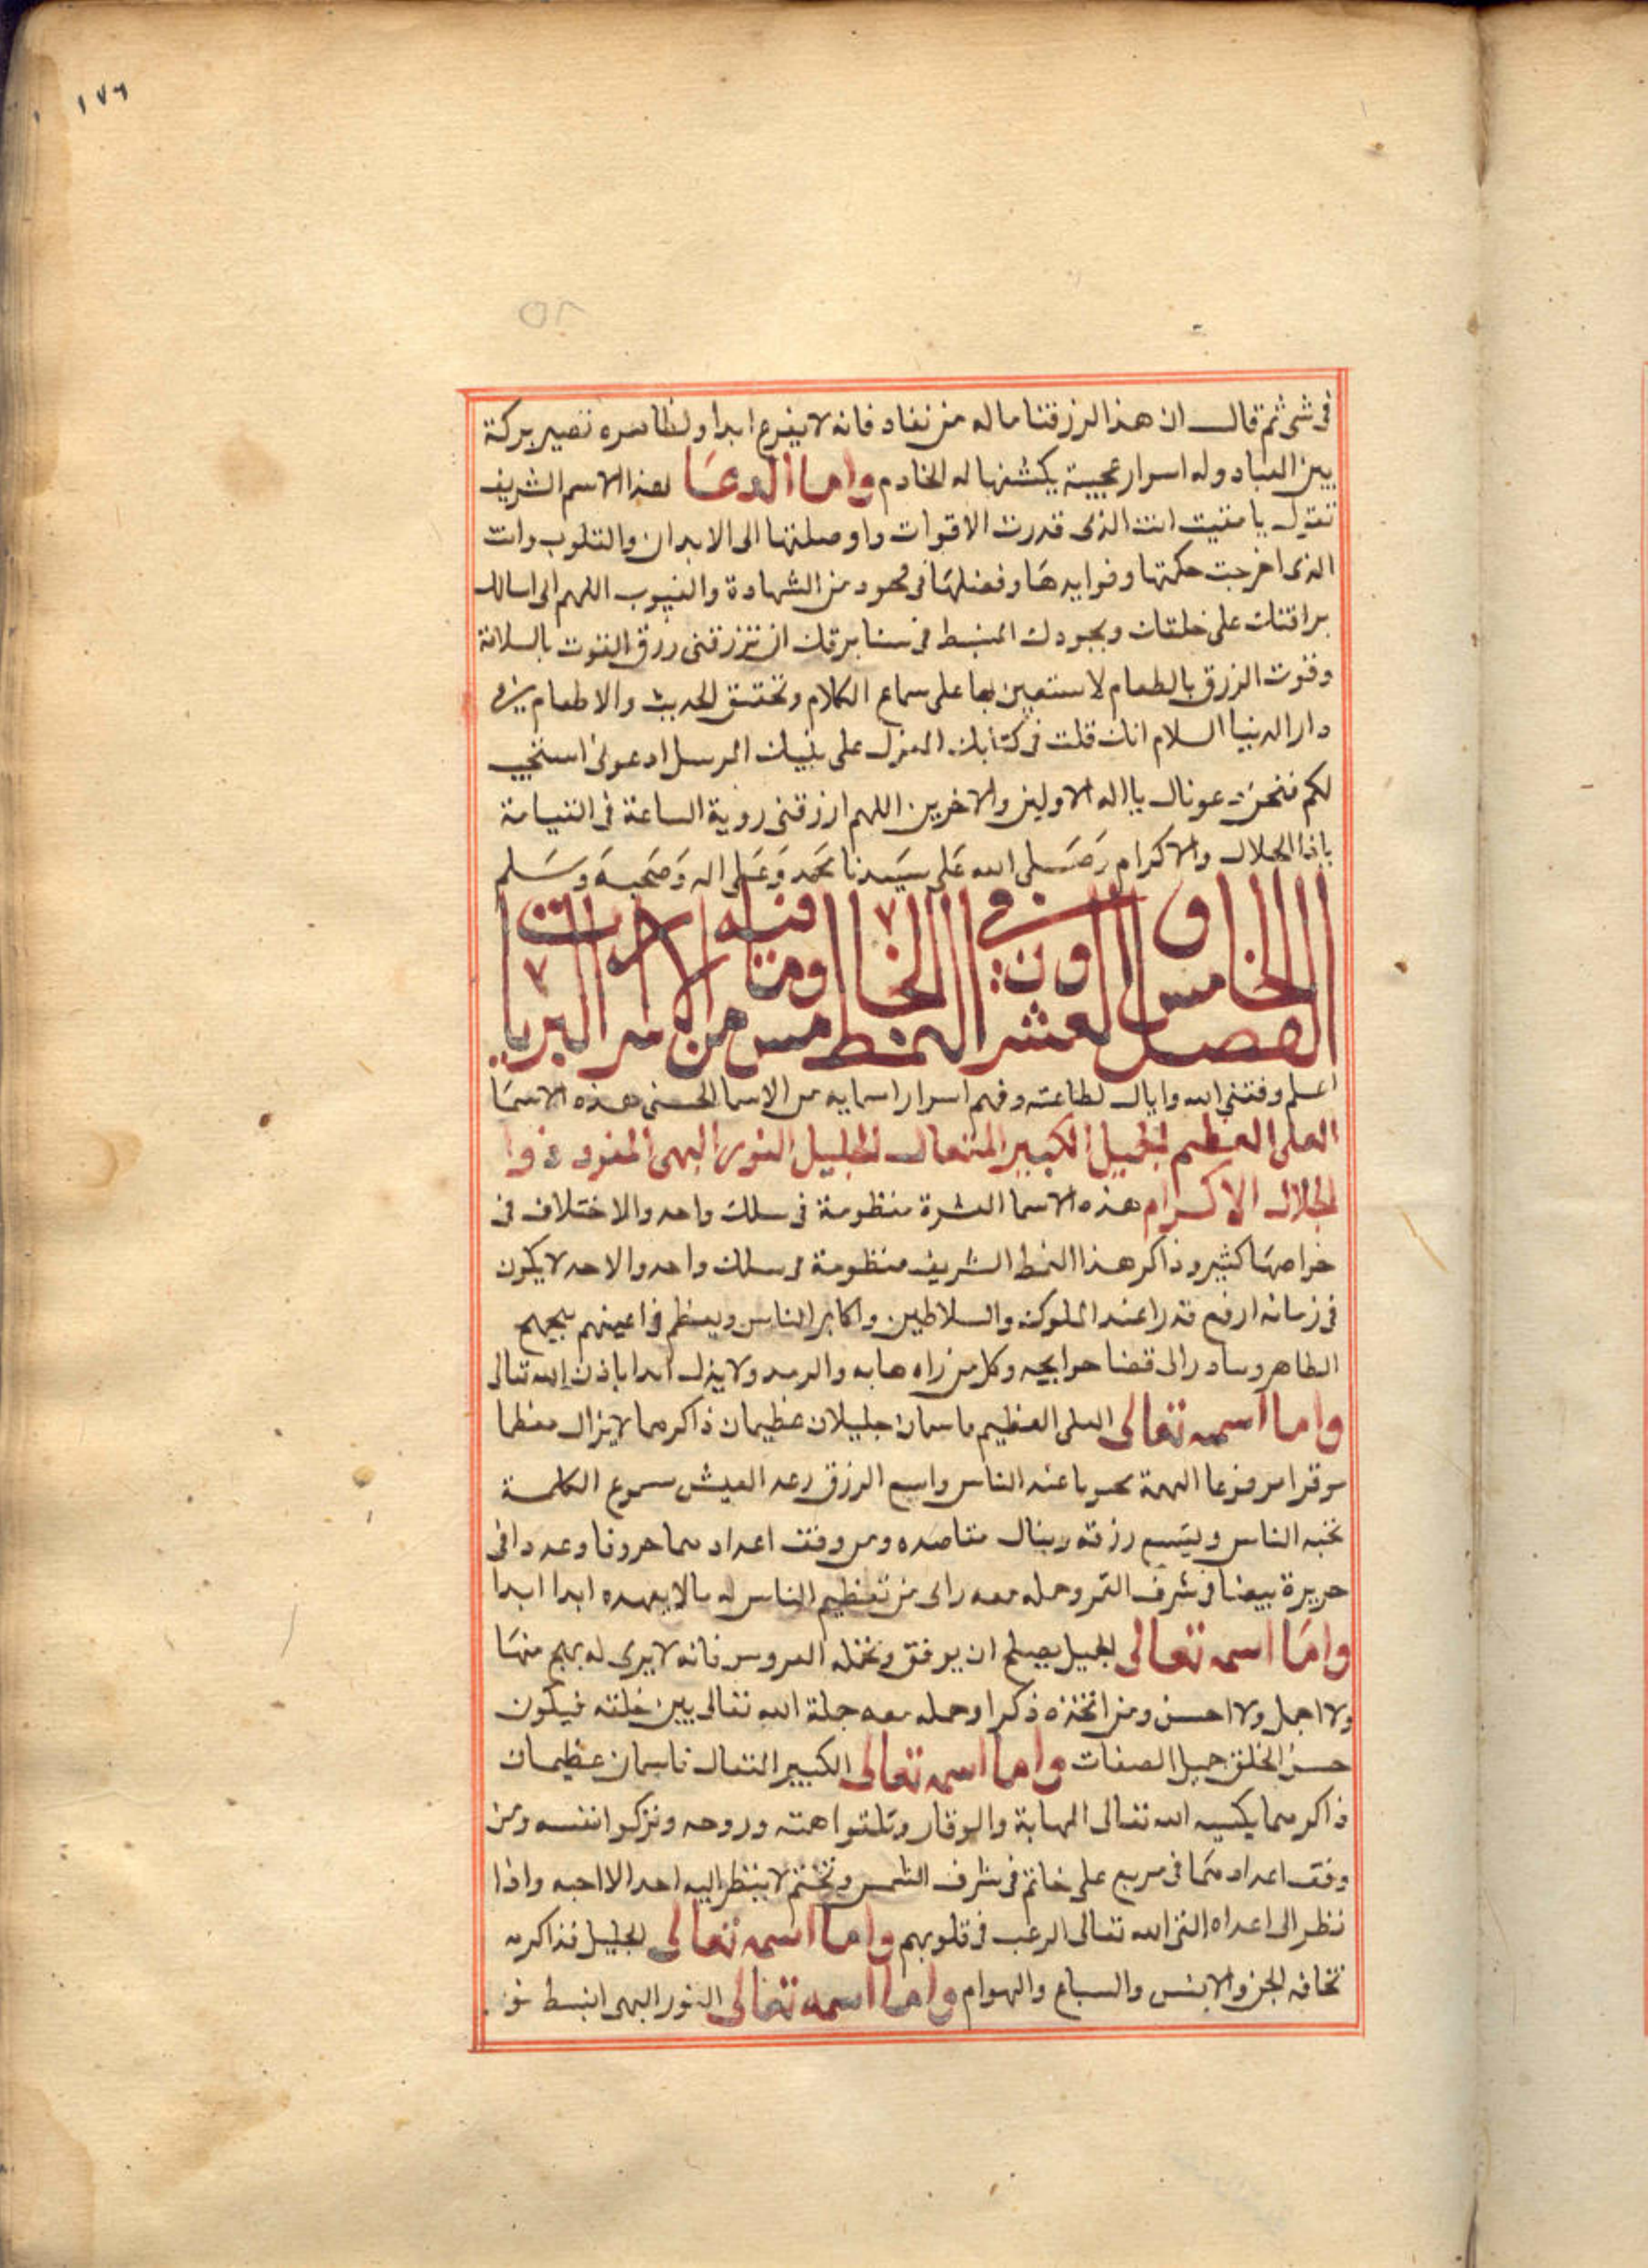 ١٧٦
فى شى ثم قال ان هذا لرزقنا ماله من نفاد فانه لا يفرغ ابدا و تصير بركة
بين العباد وله اسرار عجيبة يكشفها له الخادم واما الدعا لهذا الاسم الشريف
تقول يا مقيت انت الذى قدرت الاقوات واوصلتها الى الابدان والقلوب وانت
الذى اخرجت حكمتها وفوايدها وفضلها فى من الشهادة والغيوب اللهم انى اسالك
على خلقك وبجودك المنبسط من سنا برقك ان ترزقنى رزق القوت بالسلامة
وقوت الرزق بالطعام لاستعين بها على سماع الكلام وتحقيق الحديث والاطعام فى
دار الدنيا السلام انك قلت فى كتابك المنزل على نبيك المرسل ادعونى استجب
لكم فنحن دعوناك يا اله الاولين والاخرين اللهم ارزقنى روية الساعة فى القيامة
يا ذا الجلال والاكرام وصلى الله على سيدنا محمد وعلى اله وصحبه وسلم
الفصل الخامس والعشرون فى النمط الخامس من الاسرار
اعلم وفقنى الله واياك لطاعته وفهم اسرار اسمايه من الاسما الحسنى هذه الاسما
العلى العظيم الجميل الكبير المتعال الجليل النور البهى المعز ذوا
الجلال الاكرام هذه الاسما العشرة منظومة فى سلك واحد والاختلاف فى
خواصها كثير وذاكر هذا النمط الشريف منظومة فى سلك واحد والاحد لا يكون
فى زمانه ارفع قدرا عند الملوك والسلاطين واكابر الناس ويعظم فى اعينهم
الظاهر وسادر الى قضا حوايجه وكل من راه هابه ولا يزل ابدا باذن الله تعالى
واما اسمه تعالى العلى العظيم ماسمان جليلان عظيمان ذاكرهما لا يزال معظما
موقرا مرفوعا الهمة عند الناس واسع الرزق رعد العيش مسموع الكلمة
تحبه الناس ويتسع رزقه وينال مقاصده ومن وفق اعدادهما حروفا وعددا فى
حريرة بيضا فى شرف القمر وحمله معه راى من تعظيم الناس له مالا يعهده ابدا ابدا
واما اسمه تعالى الجميل يصلح ان يوفق وتحمله العروس فانه لا يرى له ابهج منها
ولا اجمل ولا احسن ومن اتخذه ذكرا وحمله معه جمله الله تعالى بين خلقه فيكون
حسن الخلق جميل الصفات واما اسمه تعالى الكبير المتعال فاسمان عظيمان
ذاكرهما يكسيه الله تعالى المهابة والوقار وتلقوا همته وروحه وتزكوا نفسه ومن
وفق اعدادهما فى مربع على خاتم فى شرف الشمس وتختم لا ينظر اليه احد الا احبه واذا
نظر الى اعداه القى الله تعالى الرعب فى قلوبهم واما اسمه تعالى الجليل فذاكره
تخافه الجن والانس والسباع والهوام واما اسمه تعالى النور البهى انبسط نور